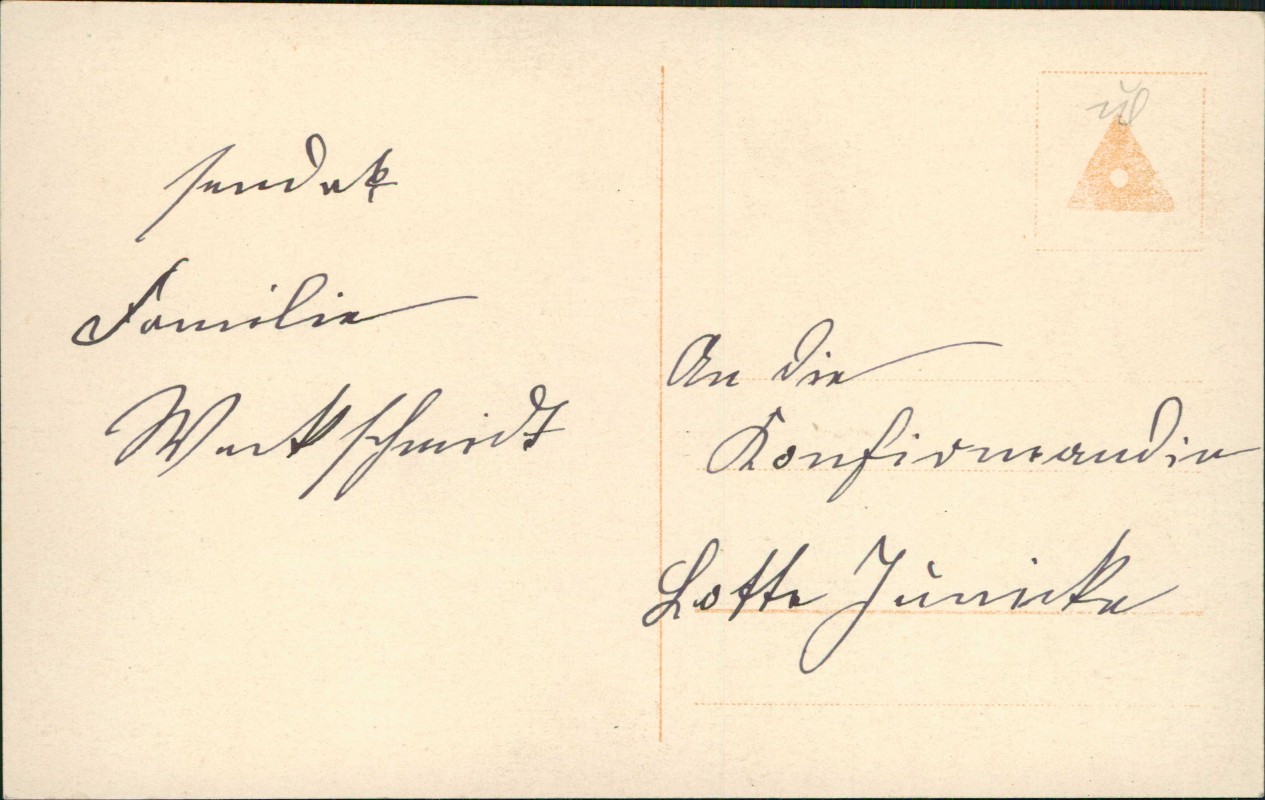 sendet
Familie
Werkschmidt
An die
Konfirmandin
Lotte Jünicke